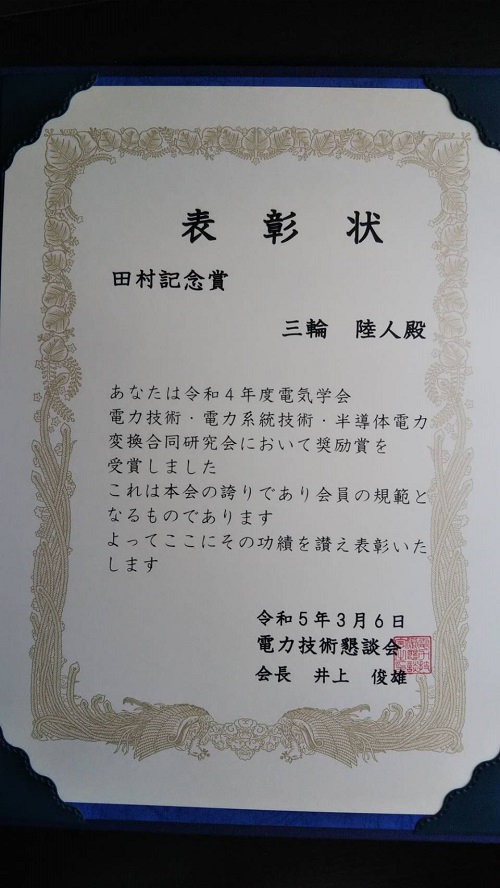 表彰状
田村記念賞
三輪　陸人殿
あなたは令和４年度電気学会
電力技術・電力系統技術・半導体電力
変換合同研究会において奨励賞を
受賞しました
これは本会の誇りであり会員の規範と
なるものであります
よってここにその功績を讃え表彰いた
します
令和５年３月６日
電力技術懇談会
会長　井上　俊雄